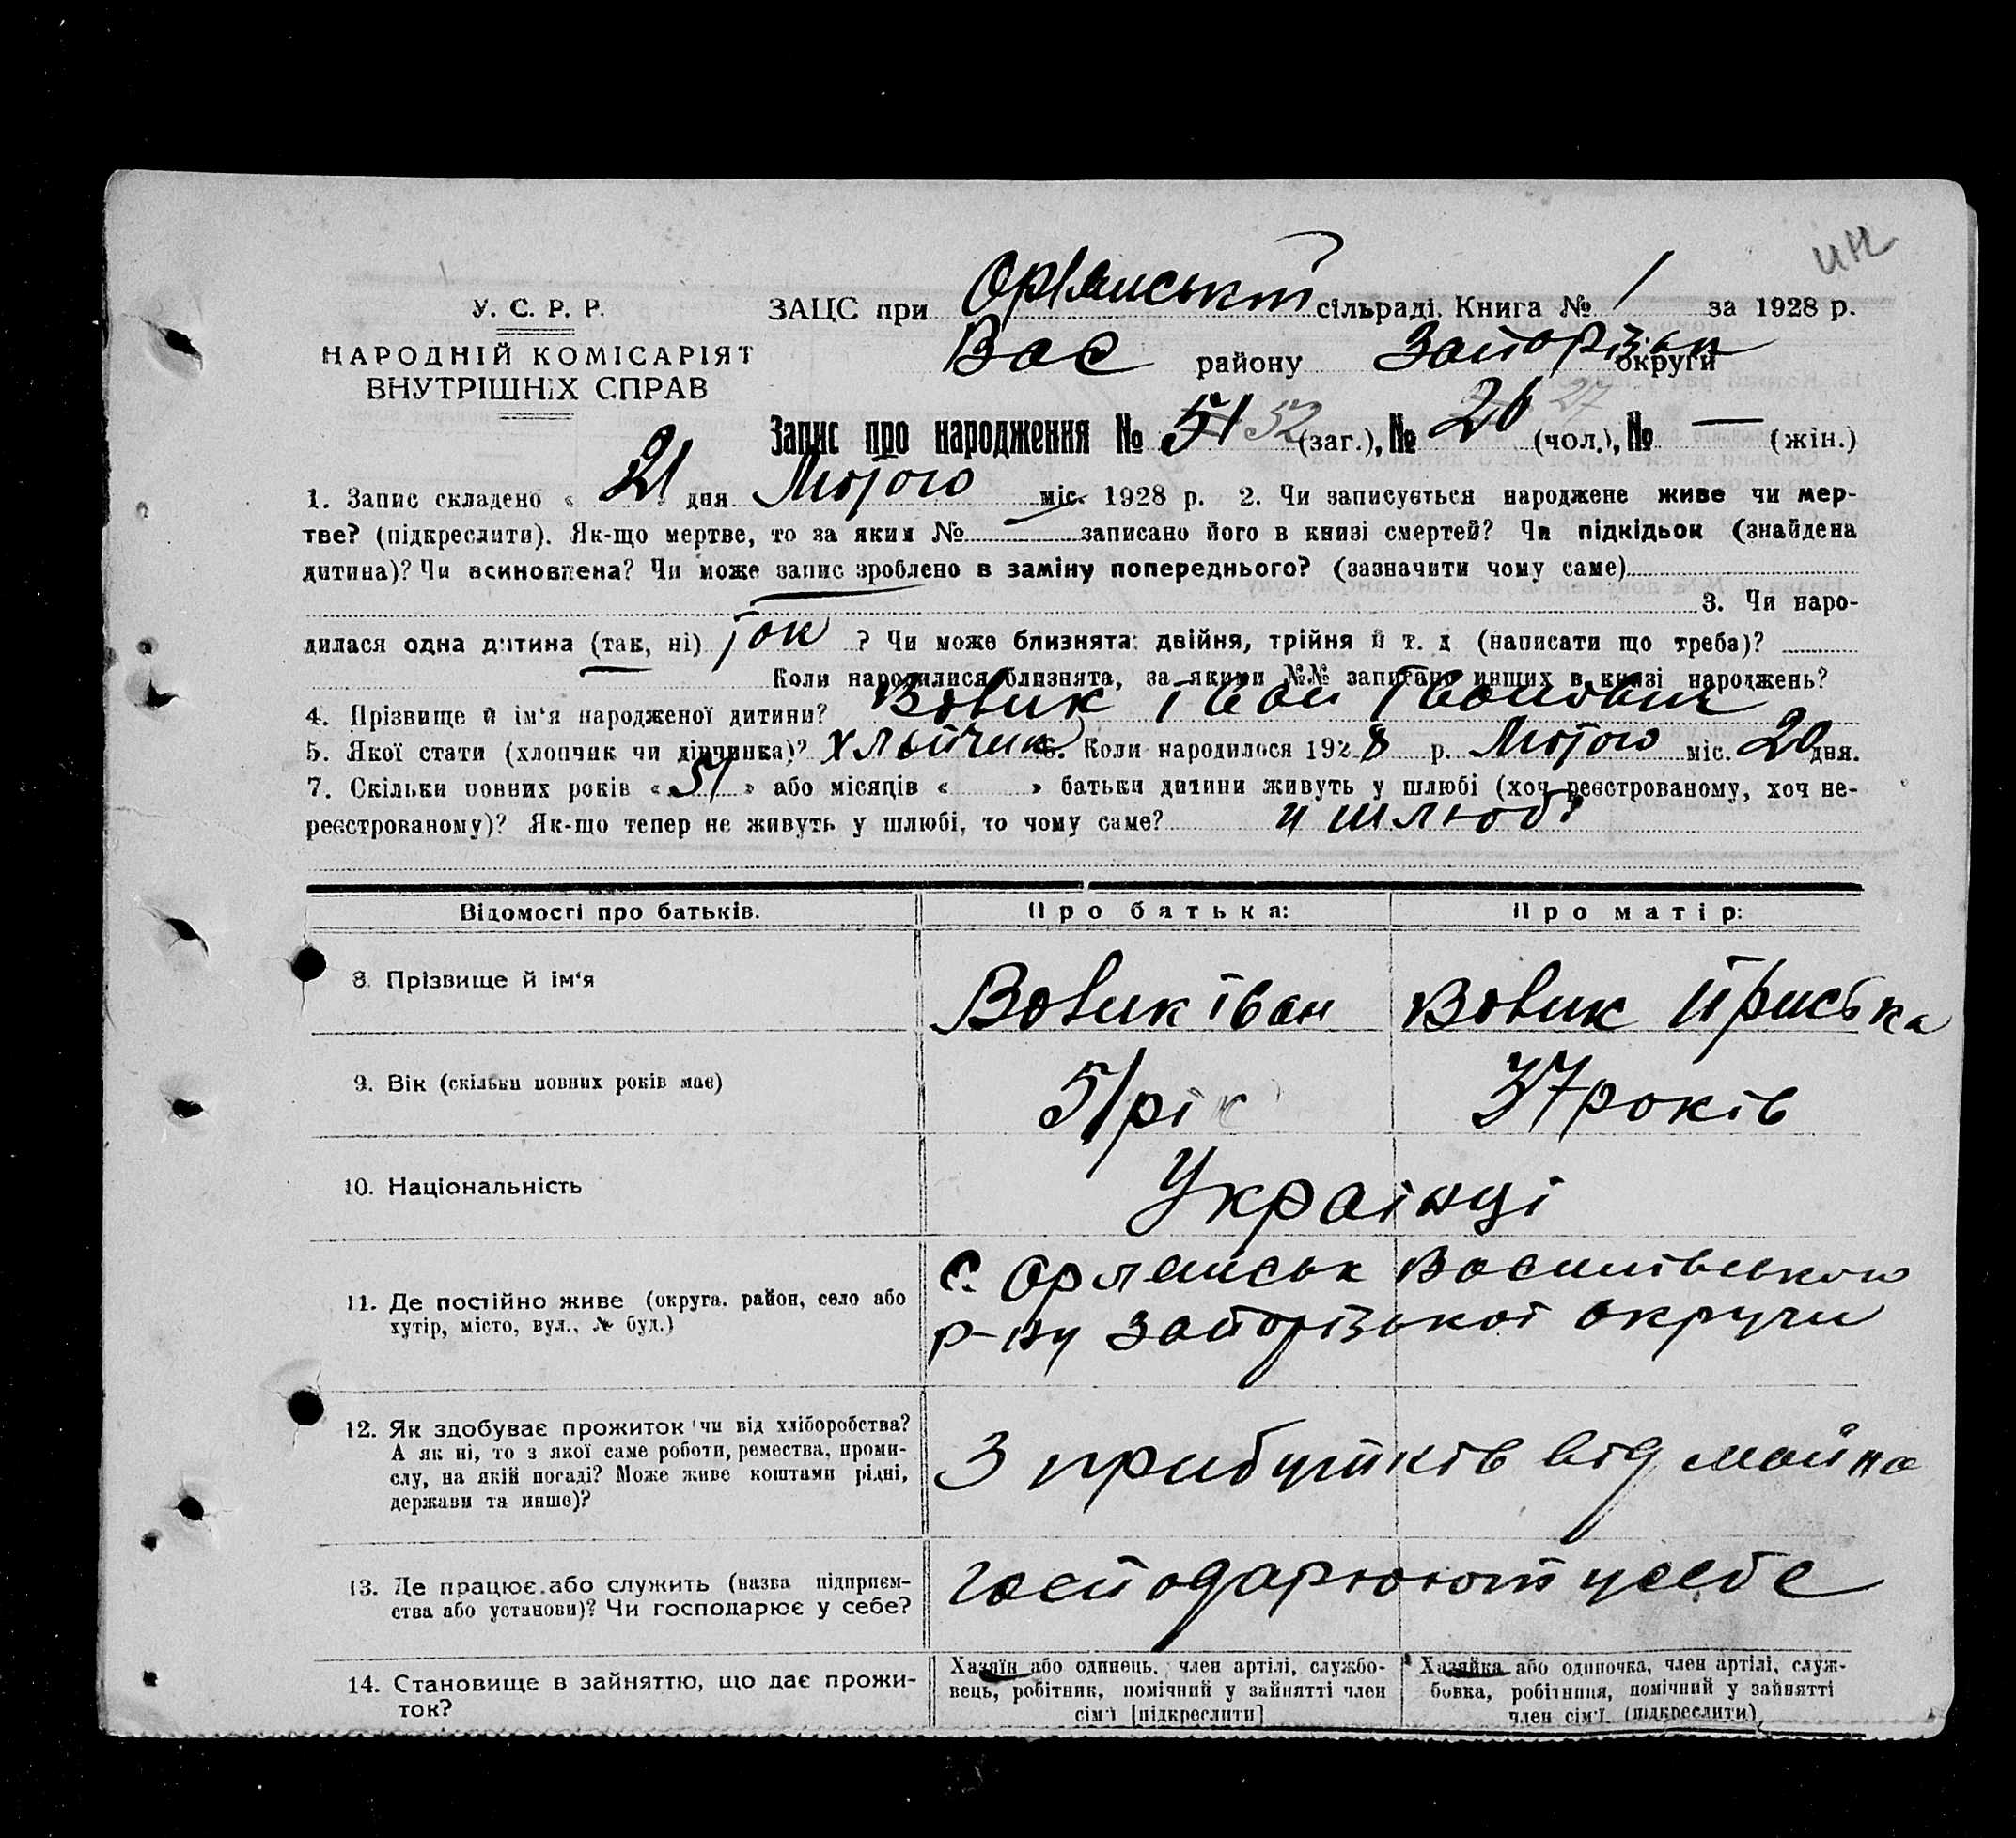 ИН
У. С. Р. Р.
НАРОДНІЙ КОМІСАРІЯТ
ВНУТРІШНІХ СПРАВ
ЗАЦС при Орлянській сільраді. Книга № 1 за 1928 р.
Вас району Запорізьк округи
Запис про народження № 51 52 (заг.), № 26 27 (чол.), № — (жін.)
1. Запис складено « 21 » дня Лютого міс. 1928 р. 2. Чи записується народжене живе чи мер-
тве? (підкреслити). Як-що мертве, то за яким № записано його в книзі смертей? Чи підкідьок (знайдена
дитина)? Чи всиновлена? Чи може запис зроблено в заміну попереднього? (зазначити чому саме)
3. Чи наро-
дилася одна дитина (так, ні) так ? Чи може близнята: двійня, трійня й т. д (написати що треба)?
Коли народилися близнята, за якими №№ записано инших в книзі народжень?
4. Прізвище й ім‘я народженої дитини? Вовик Іван Іванович
5. Якої стати (хлопчик чи дівчинка)? Хлопчик 6. Коли народилося 1928 р. Лютого міс. 20 дня.
7. Скільки повних років « 51 » або місяців « » батьки дитини живуть у шлюбі (хоч реєстрованому, хоч не-
реєстрованому)? Як-що тепер не живуть у шлюбі, то чому саме? у шлюбі
Відомості про батьків. Про батька: Про матір:
8. Прізвище й ім‘я Вовик Іван Вовик Приська
9. Вік (скільки повних років має) 51 рік 37 років
10. Національність Українці
11. Де постійно живе (округа, район, село або
хутір, місто, вул., № буд.)
с. Орлянськ Василівського
р-ну Запорізької округи
12. Як здобуває прожиток чи від хліборобства?
А як ні, то з якої саме роботи, ремества, проми-
слу, на якій посаді? Може живе коштами рідні,
держави та инше)?
З прибутків від майна
13. Де працює або служить (назва підприєм-
ства або установи)? Чи господарює у себе?
господарюють у себе
14. Становище в зайняттю, що дає прожи-
ток?
Хазяїн або одинець, член артілі, службо-
вець, робітник, помічний у зайнятті член
сім‘ї [підкреслити]
Хазяйка або одиночка, член артілі, служ-
бовка, робітниця, помічний у зайнятті
член сім‘ї (підкреслити)